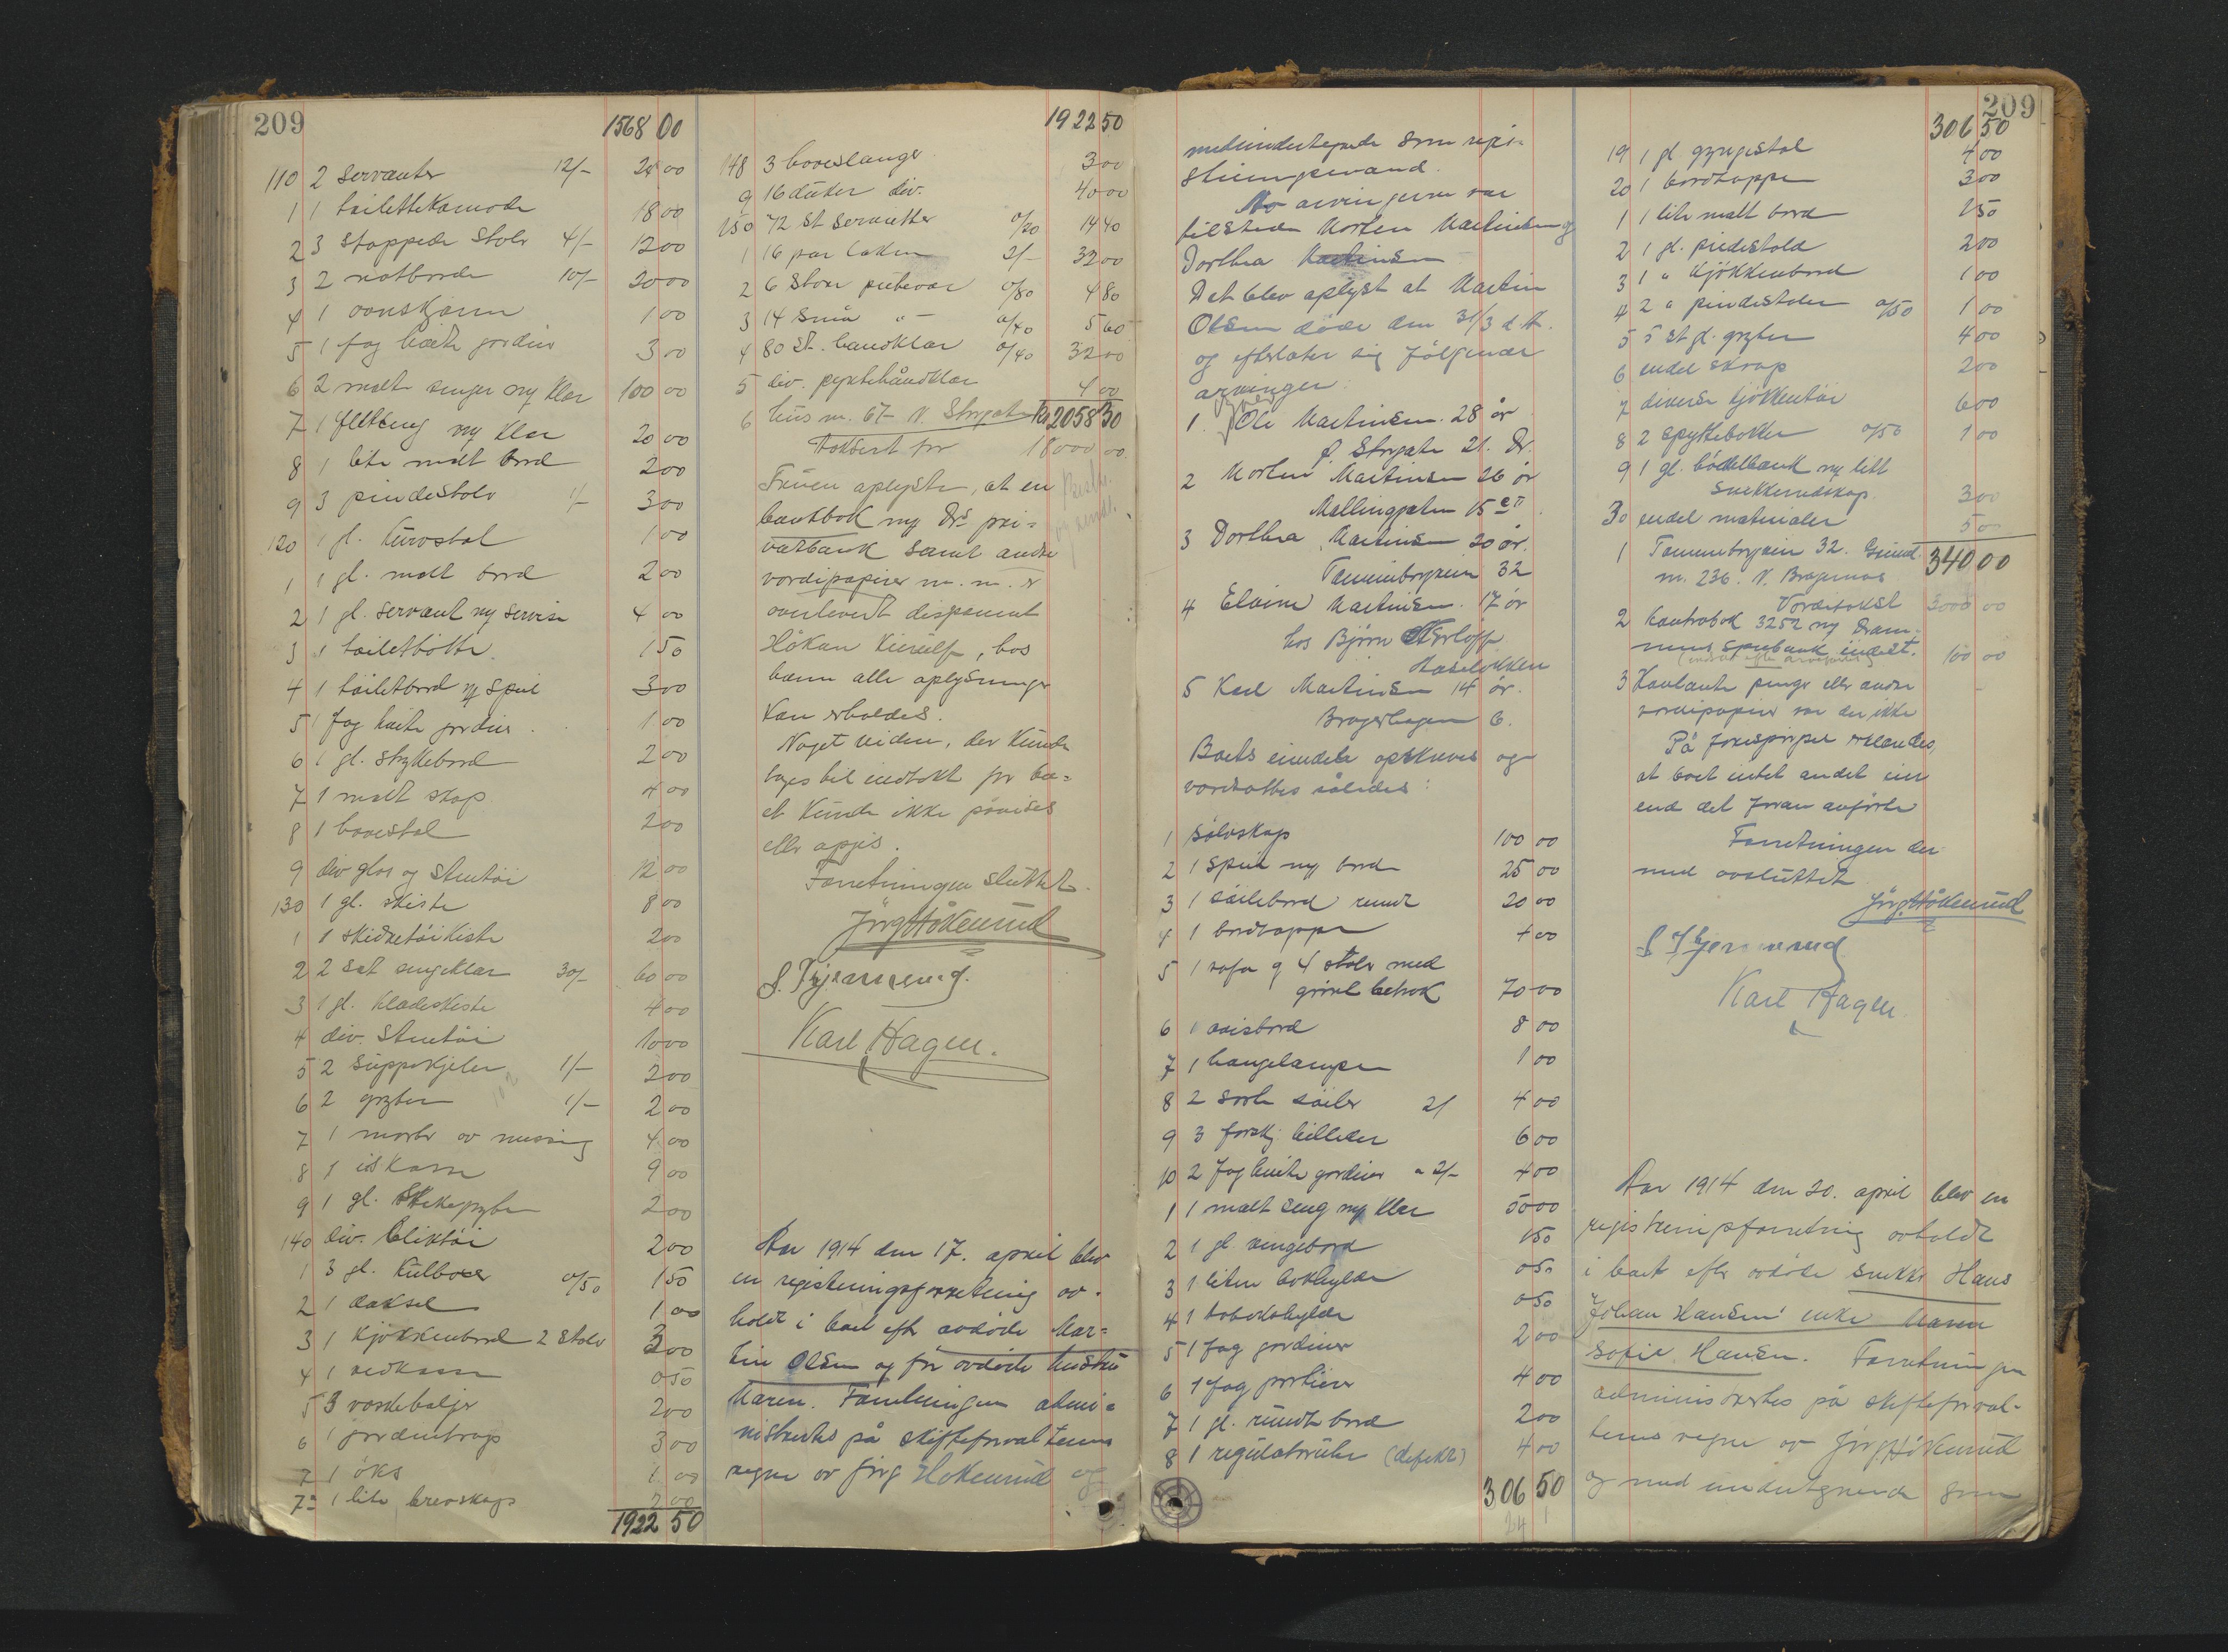 209
1568 00
110 2 servanter 12/- 24 00
1 1 toilettekomode 18 00
2 3 stoppede stole 4/- 12 00
3 2 natborde 10/- 20 00
4 1 vanskanne 1 00
5 1 fag hvite gardiner 3 00
6 2 malte senger og klær 100 00
7 1 feltseng og klær 20 00
8 1 lite malt bord 2 00
9 3 pindestole 1/- 3 00
120 1 gl. kurvstol 1 00
1 1 gl. malt bord 2 00
2 1 gl. servant og servise 4 00
3 1 toiletbøtte 1 50
4 1 toiletbord og speil 3 00
5 1 fag hvite gardiner 1 00
6 1 gl. strykebord 2 00
7 1 malt skap 4 00
8 1 havestol 2 00
9 div glas og stentøi 12 00
130 1 gl. kiste 8 00
1 1 skidentøikiste 2 00
2 2 sæt sengeklær 30/- 60 00
3 1 gl. klædeskiste 4 00
4 div. stentøi 10 00
5 2 suppekjeler 1/- 2 00
6 2 gryter 1/- 2 00
7 1 morter av messing 4 00
8 1 iskasse 9 00
9 1 gl. stekegryte 2 00
140 div. bliktøi 2 00
1 3 gl. kulbokser 0/50 1 50
2 1 daksel 1 00
3 1 kjøkkenbord 2 stole 3 00
4 1 vedkasse 0 50
5 3 vaskebaljer 2 00
6 1 gardintrapp 3 00
7 1 øks 1 00
7a 1 lite brevskap 2 00
1922 50
1922 50
148 3 haveslanger 3 00
9 16 duker div. 40 00
150 72 st servietter 0/20 14 40
1 16 par laken 2/- 32 00
2 6 store putevar 0/80 4 80
3 14 små " - 0/40 5 60
4 80 st. håndklær 0/40 32 00
5 div. pyntehåndklær 4 00
6 hus nr. 67 N. Storgate kr 2058 30
Taksert for 18000 00
Fruen oplyste, at en
bankbok og Drs pri=
vatbank samt andre
værdipapirer m. m. er
overlevert disponent
Håkon Kierulf, hos
ham alle oplysninger
kan erholdes.
Noget videre, der kunde
tages til indtækt for bo=
et kunde ikke påvises
eller opgis.
Forretningen sluttet.
Jörg Hökerud
Karl Hagen.
Aar 1914 den 17. april blev
en registreringsforretning av=
holdt i boet efter avdøde Mar=
tin Olsen og før avdøde hustru
Maren. Forretningen admi=
nistrertes på skifteforvalterens
vegne av Jörg Hökerud og
medundertegnede som regi=
streringsvand.
Av arvingerne var
tilstede Morten Martinsen og
Dorthea Martinsen
Det blev oplyst at Martin
Olsen døde den 31/3 d. A.
og efterlater sig følgende
arvinger:
1. Ole Martinsen. 28 år
Ø. Storgate 21. Dr.
2 Morten Martinsen 26 år
Mallinggaten 15 c II
3 Dorthea Martinsen 20 år.
Tammbrygaden 32
4 Elvine Martinsen. 17 år
hos Bjørn
5 Karl Martinsen 14 år.
Bragerhagen 6.
Boets eiendele opskreves og
værdsattes således:
1 sølvskap 100 00
2 1 speil og bord 25 00
3 1 søilebord rundt 20 00
4 1 bordtæppe 4 00
5 1 sofa og 4 stole med
grønt betræk 70 00
6 1 avisbord 8 00
7 1 hængelampe 1 00
8 2 sorte søiler 2/ 4 00
9 3 forskj billeder 6 00
10 2 fag hvite gardiner a 2/- 4 00
1 1 malt seng og klær 50 00
2 1 gl. sengebord 1 50
3 1 liten bokhylde 0 50
4 1 tobakshylde 0 50
5 1 fag gardiner 2 00
6 1 fag portierer 4 00
7 1 gl. rundt bord 2 00
8 1 regulatorur (defekt) 4 00
306 50
209
306 50
19 1 gl gyngestol 4 00
20 1 bordtæppe 3 00
1 1 lite malt bord 1 50
2 1 gl. pindestole 2 00
3 1 " kjøkkenbord 1 00
4 2 " pindestoler 0/50 1 00
5 5 st gl. gryter 4 00
6 endel skrap 2 00
7 diverse kjøkkentøi 6 00
8 2 spyttebakker 0/50 1 00
9 1 gl. høvelbænk og litt
snekkerredskap 3 00
30 endel materialer 5 00
340 00
1 32. Grund
nr. 236. V. Bragernes
Værditakst 3000 00
2 Kontrabok 3252 og Dram-
mens sparebank indest. 100 00
3 Kontante penger eller andre
værdipapirer var der ikke
På forespørsel erklærtes,
at boet intet andet eier
end det foran anførte
Forretningen der-
med avsluttet
Jörg Hökerud
Karl Hagen.
Aar 1914 den 20. april blev en
registreringsforretning avholdt
i boet efter avdøde snekker Hans
Johan Hansens enke Maren
Sofie Hansen. Forretningen
administrertes på skifteforval-
terens vegne av Jörg Hökerud
og med undertegnede som